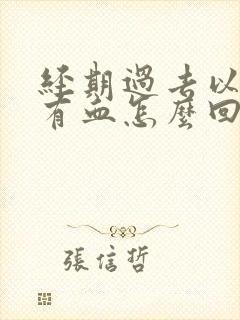 經期過去以
有血怎麼回
張信哲